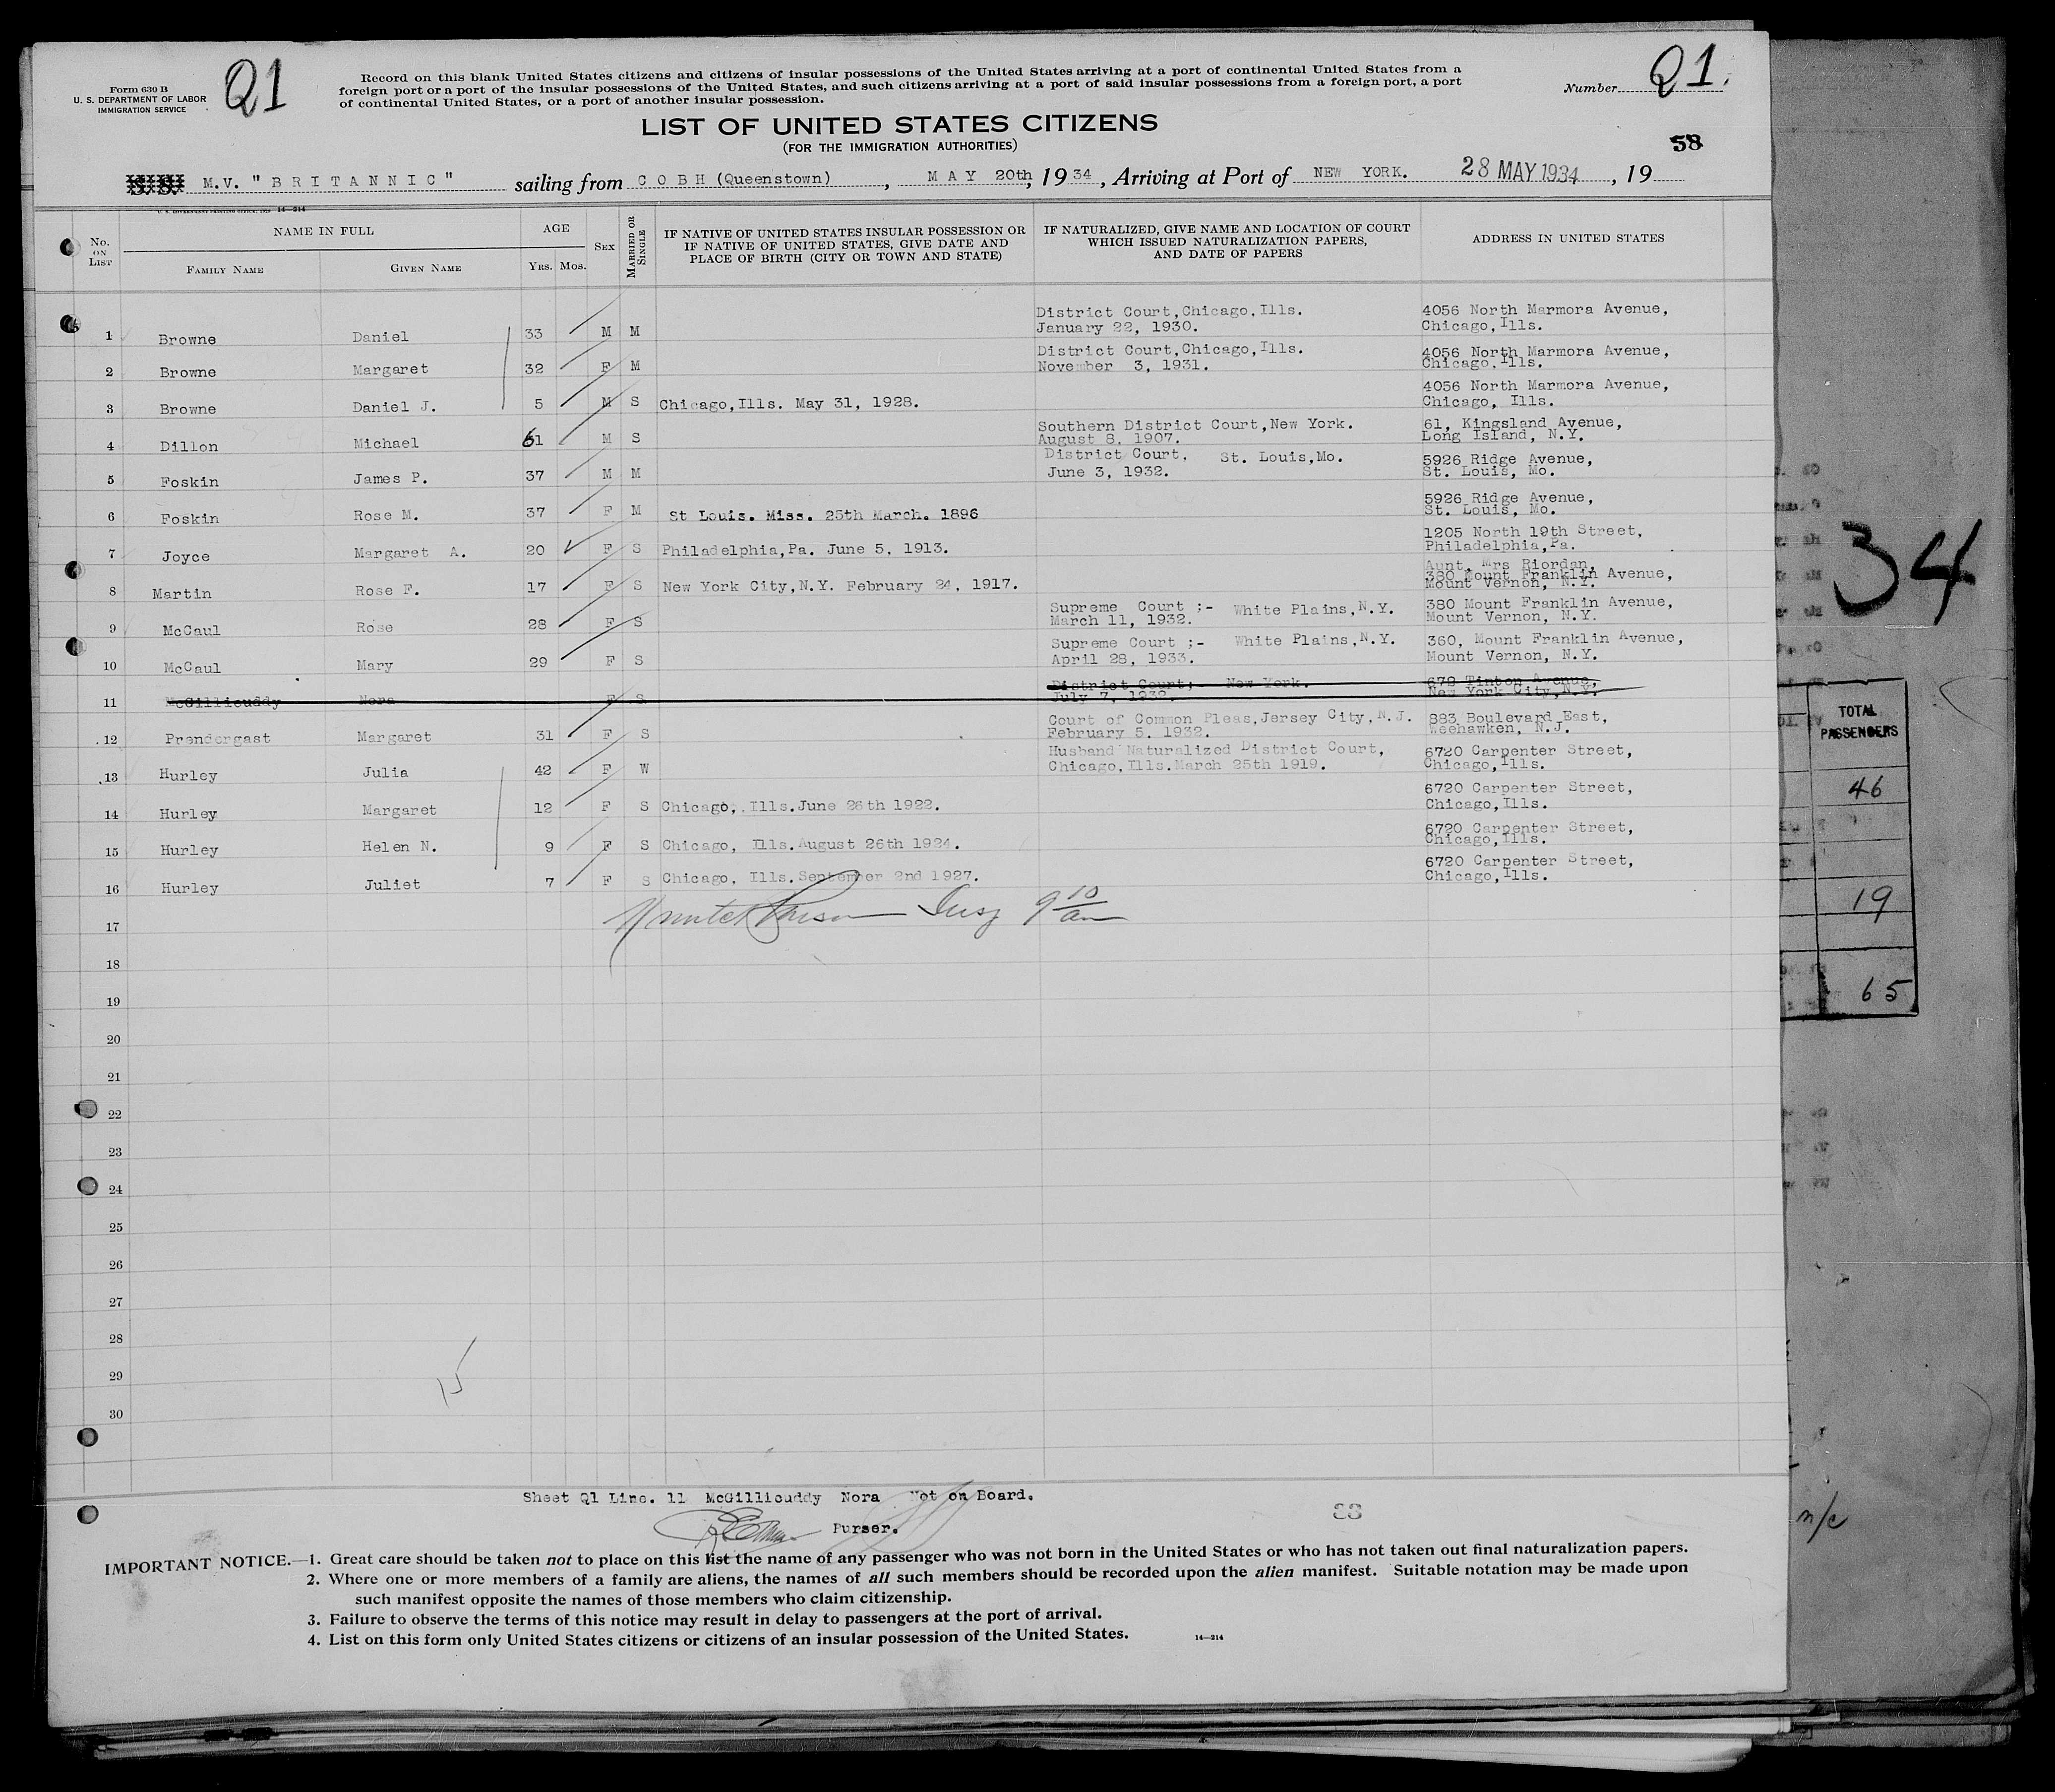 Form 630 B
U. S. DEPARTMENT OF LABOR
IMMIGRATION SERVICE
Q1
Record on this blank United States citizens and citizens of insular possessions of the United States arriving at a port of continental United States from a
foreign port or a port of the insular possessions of the United States, and such citizens arriving at a port of said insular possessions from a foreign port, a port
of continental United States, or a port of another insular possession.
Number Q1.
LIST OF UNITED STATES CITIZENS
(FOR THE IMMIGRATION AUTHORITIES)
58
S. S. M.V. "BRITANNIC" sailing from COBH (Queenstown), MAY 20th, 1934, Arriving at Port of NEW YORK. 28 MAY 1934, 19
No. ON LIST
NAME IN FULL
FAMILY NAME GIVEN NAME
AGE
YRS. MOS.
SEX
MARRIED OR SINGLE
IF NATIVE OF UNITED STATES INSULAR POSSESSION OR
IF NATIVE OF UNITED STATES, GIVE DATE AND
PLACE OF BIRTH (CITY OR TOWN AND STATE)
IF NATURALIZED, GIVE NAME AND LOCATION OF COURT
WHICH ISSUED NATURALIZATION PAPERS,
AND DATE OF PAPERS
ADDRESS IN UNITED STATES
1 Browne Daniel 33 M M District Court, Chicago, Ills. January 22, 1930. 4056 North Marmora Avenue, Chicago, Ills.
2 Browne Margaret 32 F M District Court, Chicago, Ills. November 3, 1931. 4056 North Marmora Avenue, Chicago, Ills.
3 Browne Daniel J. 5 M S Chicago, Ills. May 31, 1928. 4056 North Marmora Avenue, Chicago, Ills.
4 Dillon Michael 61 M S Southern District Court, New York. August 8, 1907. 61, Kingsland Avenue, Long Island, N.Y.
5 Foskin James P. 37 M M District Court, St. Louis, Mo. June 3, 1932. 5926 Ridge Avenue, St. Louis, Mo.
6 Foskin Rose M. 37 F M St Louis. Miss. 25th March. 1896 5926 Ridge Avenue, St. Louis, Mo.
7 Joyce Margaret A. 20 F S Philadelphia, Pa. June 5, 1913. 1205 North 19th Street, Philadelphia, Pa.
8 Martin Rose F. 17 F S New York City, N.Y. February 24, 1917. Aunt, Mrs Riordan, 380 Mount Franklin Avenue, Mount Vernon, N.Y.
9 McCaul Rose 28 F S Supreme Court ;- White Plains, N.Y. March 11, 1932. 380 Mount Franklin Avenue, Mount Vernon, N.Y.
10 McCaul Mary 29 F S Supreme Court ;- White Plains, N.Y. April 28, 1933. 360, Mount Franklin Avenue, Mount Vernon, N.Y.
11 McGillicuddy Nora F S District Court; New York. July 7, 1932. 679 Tinton Avenue, New York City, N.Y.
12 Prendergast Margaret 31 F S Court of Common Pleas, Jersey City, N.J. February 5, 1932. 883 Boulevard East, Weehawken, N.J.
13 Hurley Julia 42 F W Husband Naturalized District Court, Chicago, Ills. March 25th 1919. 6720 Carpenter Street, Chicago, Ills.
14 Hurley Margaret 12 F S Chicago, Ills. June 26th 1922. 6720 Carpenter Street, Chicago, Ills.
15 Hurley Helen N. 9 F S Chicago, Ills. August 26th 1924. 6720 Carpenter Street, Chicago, Ills.
16 Hurley Juliet 7 F S Chicago, Ills. September 2nd 1927. 6720 Carpenter Street, Chicago, Ills.
17 Insp 9 10 am
18
19
20
21
22
23
24
25
26
27
28
29
30
15
Sheet Q1 Line. 11 McGillicuddy Nora Not on Board.
Purser.
IMPORTANT NOTICE.—1. Great care should be taken not to place on this list the name of any passenger who was not born in the United States or who has not taken out final naturalization papers.
2. Where one or more members of a family are aliens, the names of all such members should be recorded upon the alien manifest. Suitable notation may be made upon
such manifest opposite the names of those members who claim citizenship.
3. Failure to observe the terms of this notice may result in delay to passengers at the port of arrival.
4. List on this form only United States citizens or citizens of an insular possession of the United States.
14—214
34
TOTAL
PASSENGERS
46
19
65
n/c